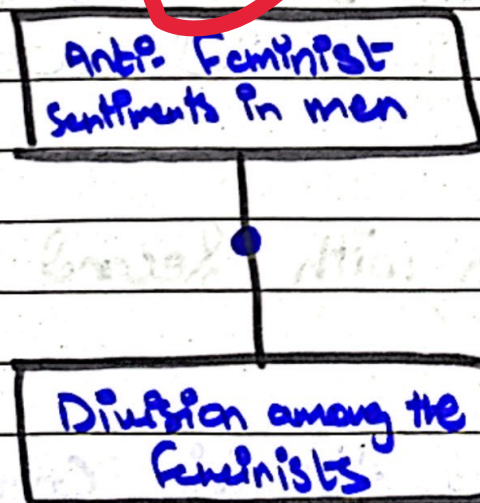 Anti-Feminist
sentiments in men
Division among the
Feminists